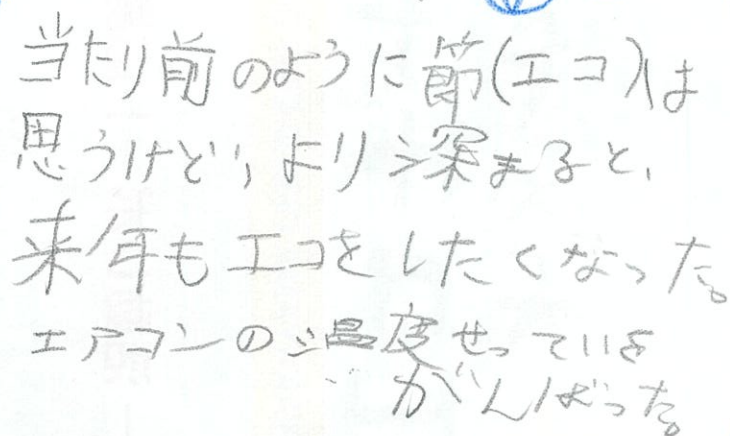 当たり前のように節(エコ)は
思うけど、より深まると、
来年もエコをしたくなった。
エアコンの温度せっていを
がんばった。